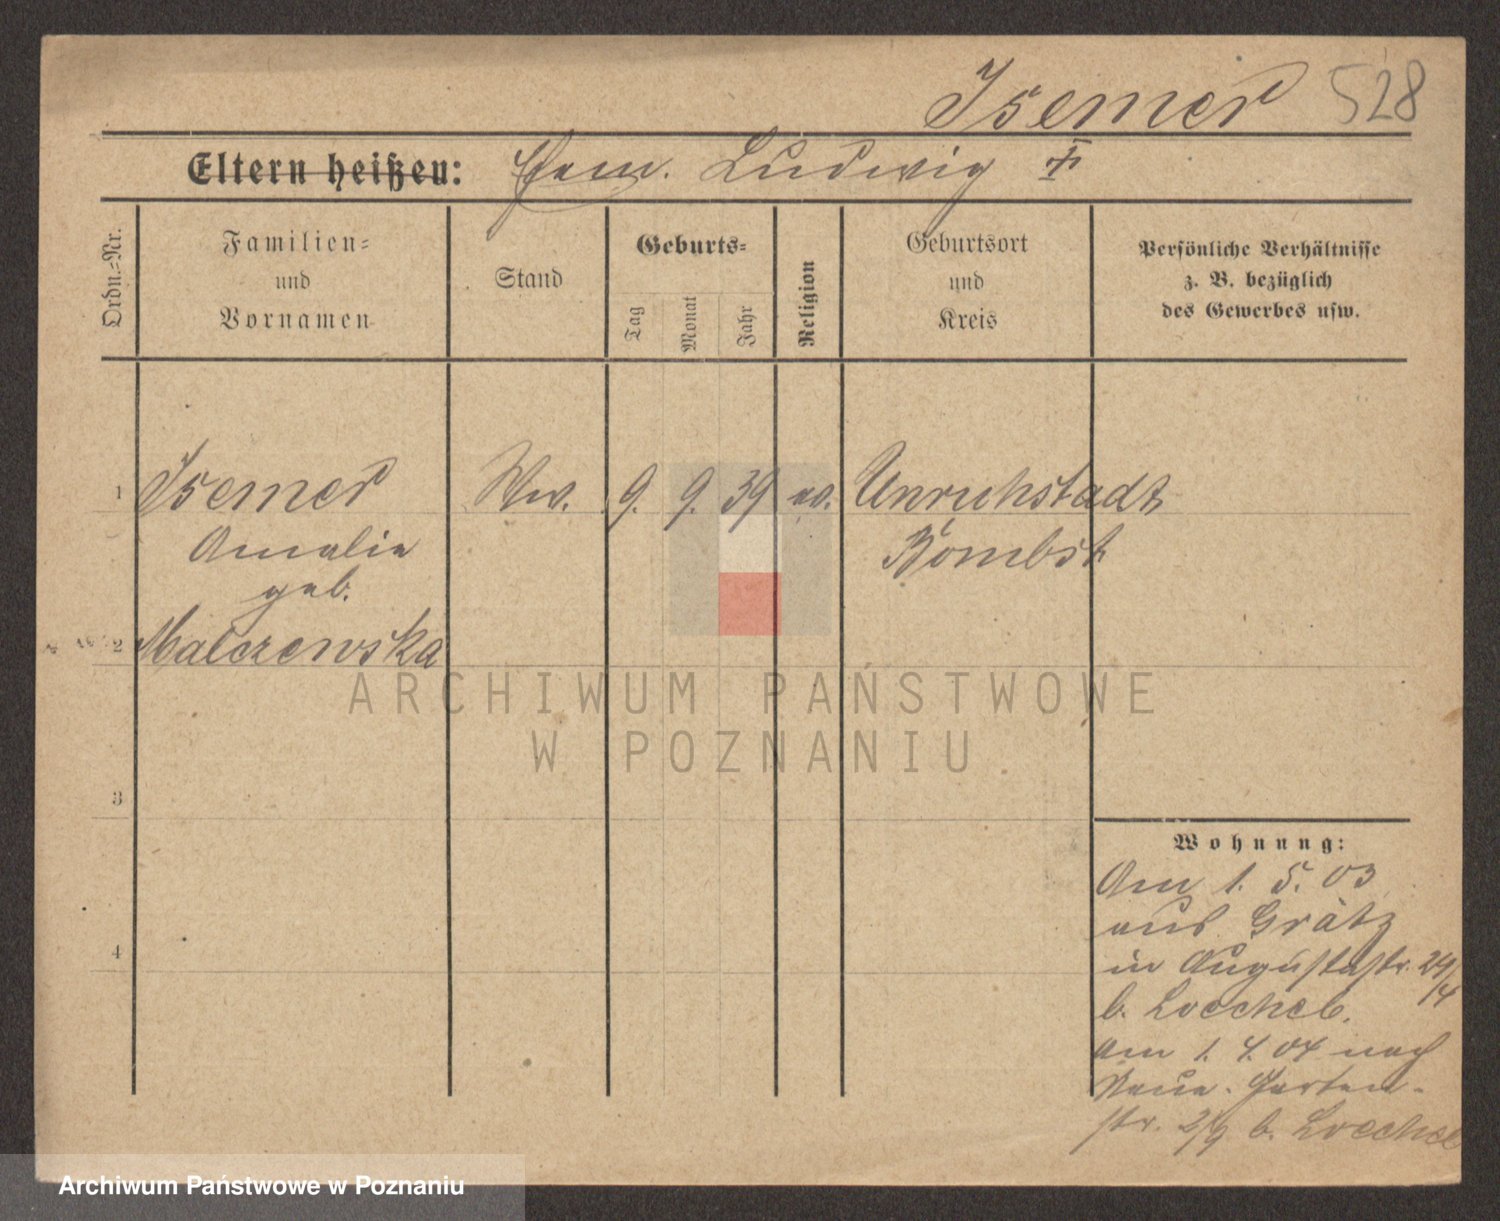 Isemer 528
Eltern heißen: Ludwig †
Ordn.-Nr.
Familien-
und
Vornamen
Stand
Geburts-
Tag
Monat
Jahr
Religion
Geburtsort
und
Kreis
Persönliche Verhältnisse
z. B. bezüglich
des Gewerbes usw.
1 Isemer Ww. 9. 9. 39 ev. Unruhstadt
Amalie Bombst
geb.
2 Malczewska
ARCHIWUM PAŃSTWOWE
W POZNANIU
3
Wohnung:
Am 1. 5. 03
aus Grätz
4
in Augustastr. 24/4
b. Loecheb.
Am 1. 4. 04 nach
Neue-Garten-
str. 2/9 b. Loecheb
Archiwum Państwowe w Poznaniu